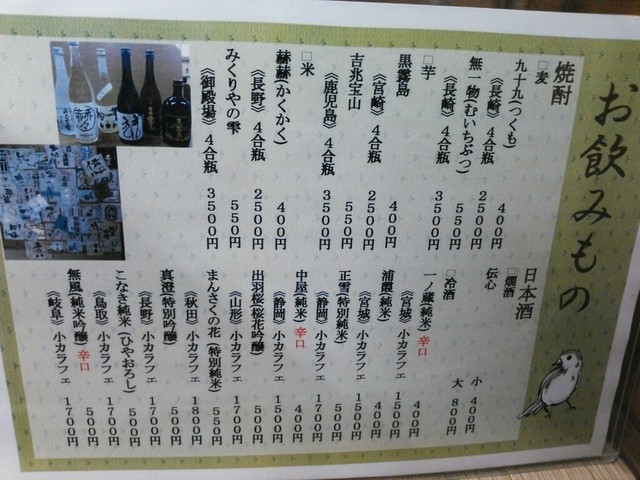 お飲みもの
焼酎
□麦
九十九(つくも) 400円
《長崎》4合瓶 2500円
無一物(むいちぶつ) 550円
《長崎》4合瓶 3500円
□芋
黒霧島 400円
《宮崎》4合瓶 2500円
吉兆宝山 550円
《鹿児島》4合瓶 3500円
□米
赫赫(かくかく) 400円
《長野》4合瓶 2500円
みくりやの雫 550円
《御殿場》4合瓶 3500円
日本酒
□燗酒
伝心 小 400円
大 800円
□冷酒
一ノ蔵(純米)辛口 400円
《宮城》小カラフェ 1500円
浦霞(純米) 400円
《宮城》小カラフェ 1500円
正雪(特別純米) 500円
《静岡》小カラフェ 1700円
中屋(純米)辛口 400円
《静岡》小カラフェ 1500円
出羽桜(桜花吟醸) 500円
《山形》小カラフェ 1700円
まんさくの花(特別純米) 550円
《秋田》小カラフェ 1800円
真澄(特別吟醸) 500円
《長野》小カラフェ 1700円
こなき純米(ひやおろし) 500円
《鳥取》小カラフェ 1700円
無風(純米吟醸)辛口 500円
《岐阜》小カラフェ 1700円